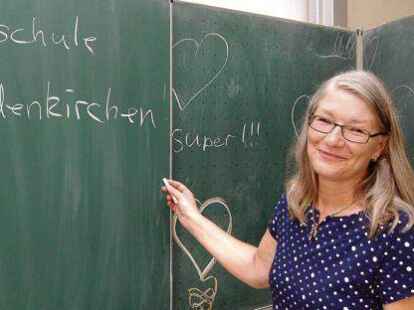 schule
denkirchen
super!!!